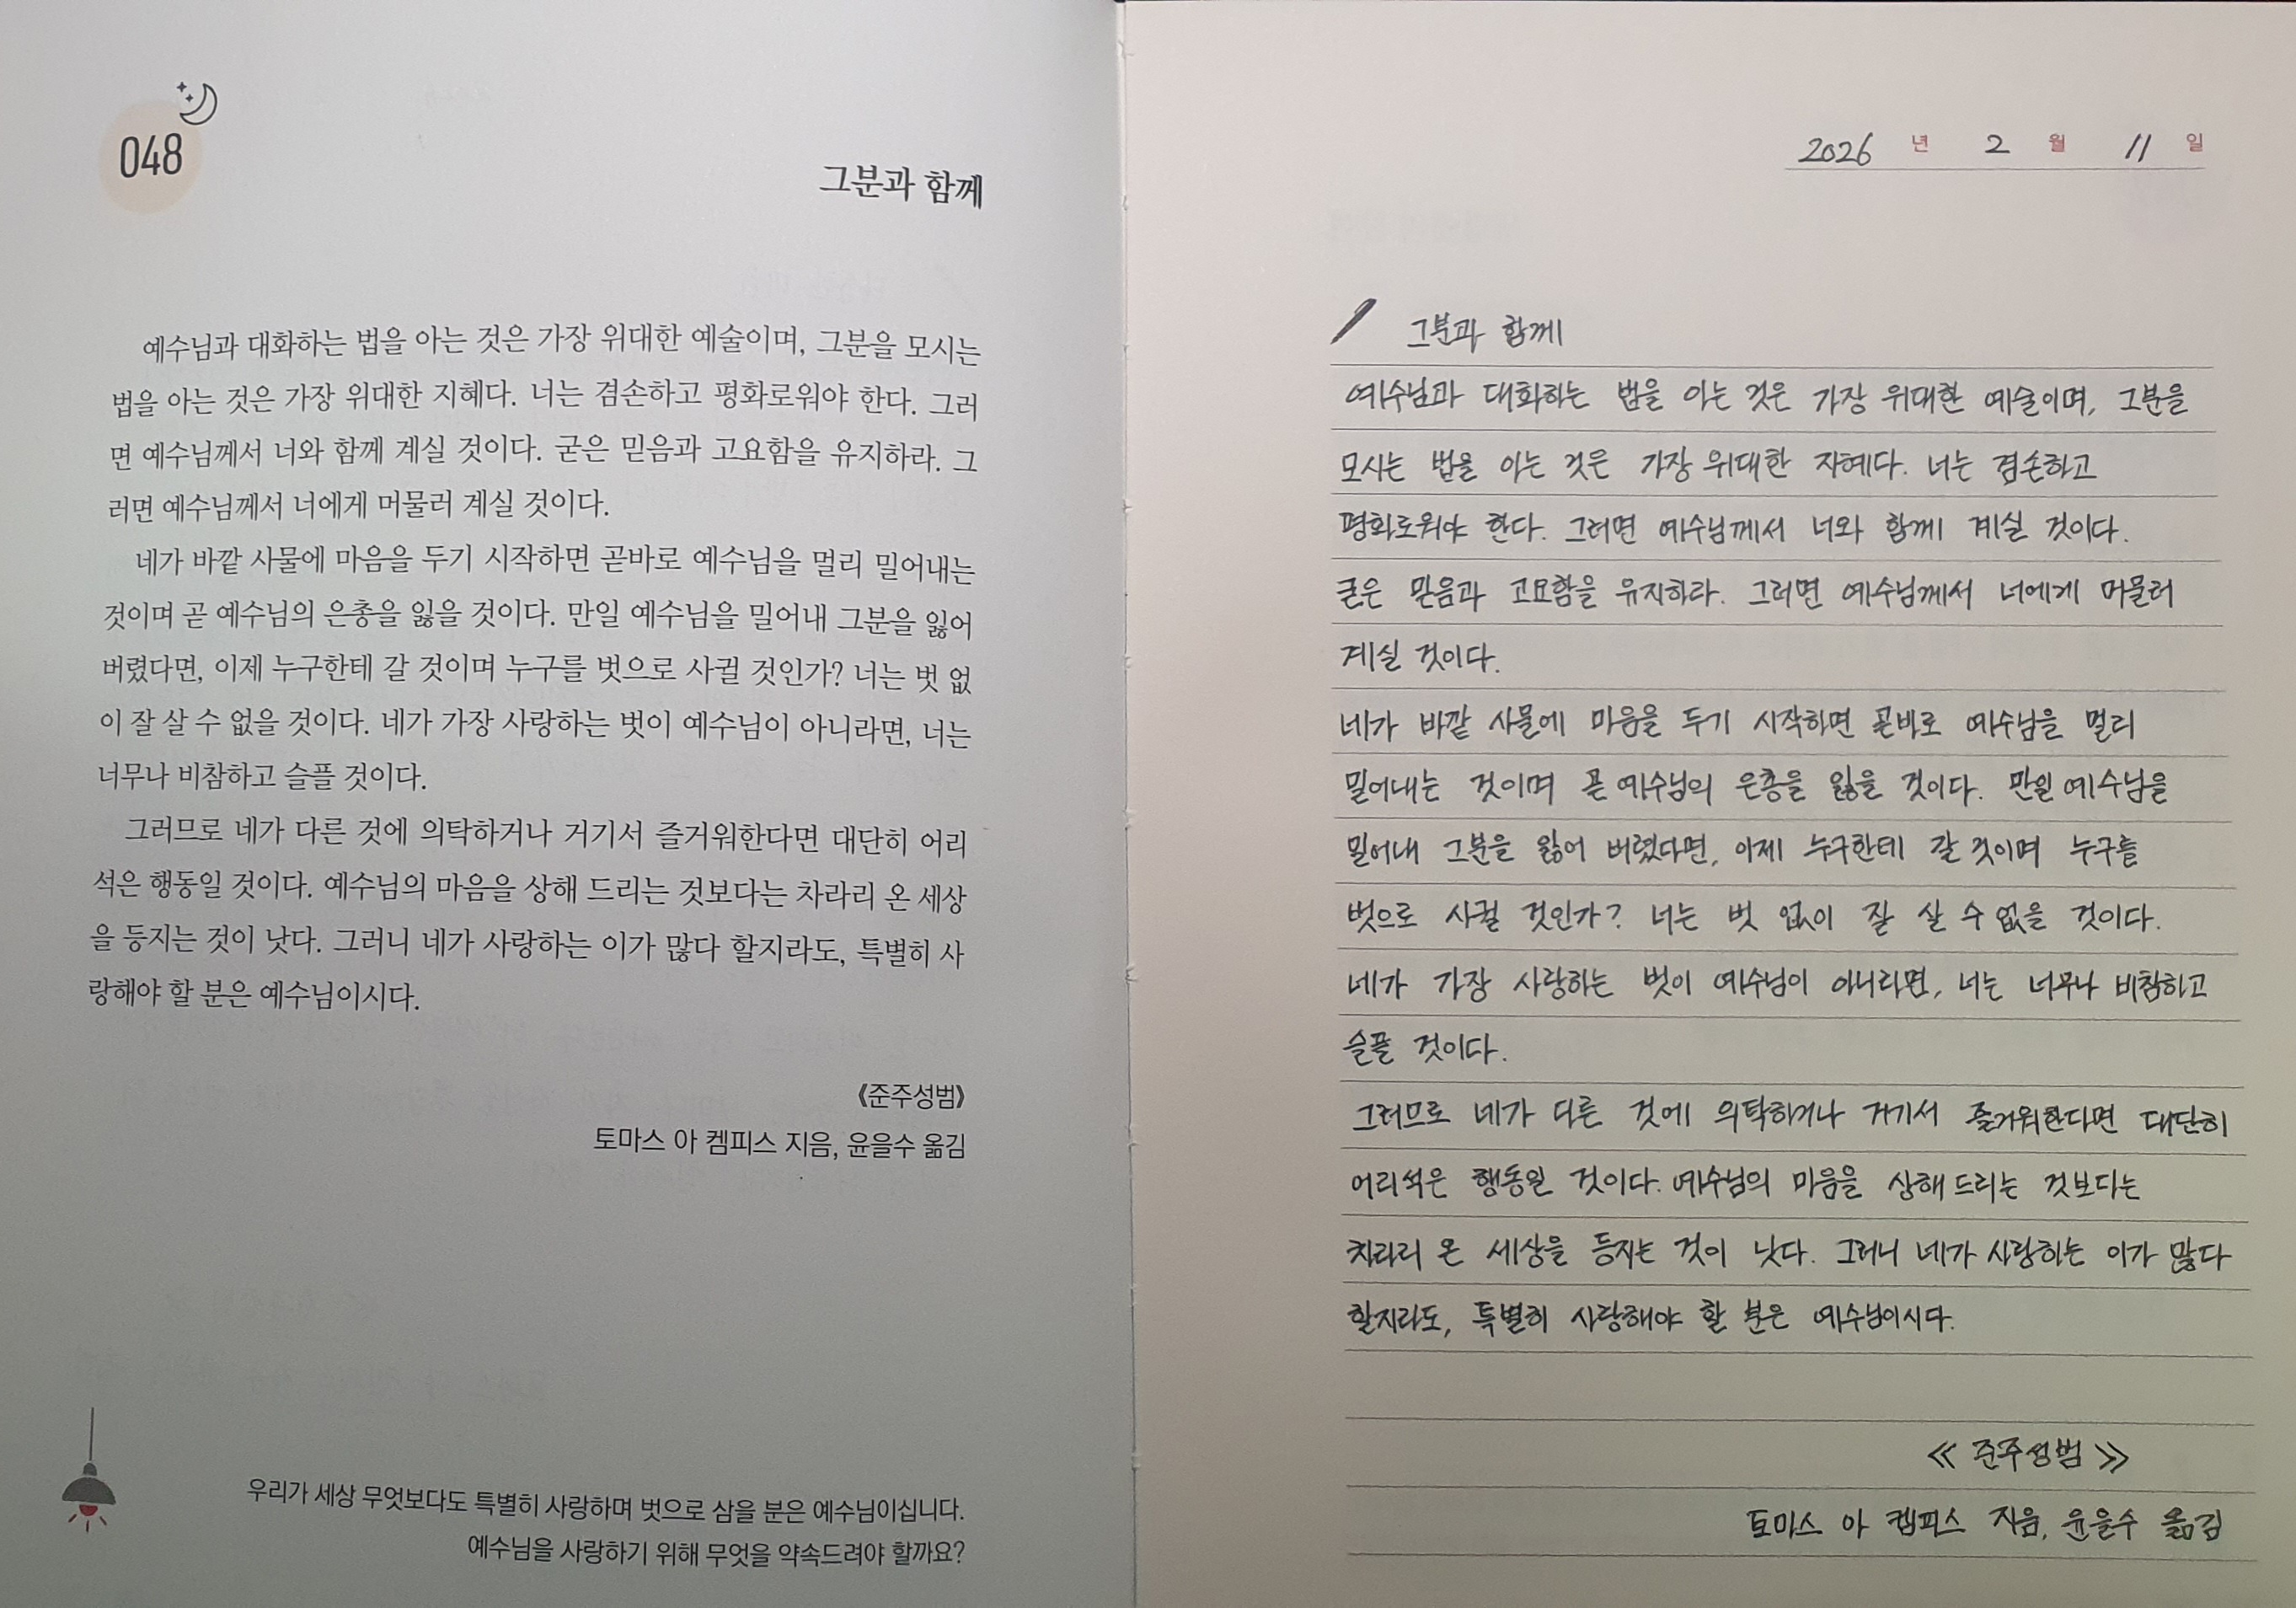 048
그분과 함께
예수님과 대화하는 법을 아는 것은 가장 위대한 예술이며, 그분을 모시는
법을 아는 것은 가장 위대한 지혜다. 너는 겸손하고 평화로워야 한다. 그러
면 예수님께서 너와 함께 계실 것이다. 굳은 믿음과 고요함을 유지하라. 그
러면 예수님께서 너에게 머물러 계실 것이다.
네가 바깥 사물에 마음을 두기 시작하면 곧바로 예수님을 멀리 밀어내는
것이며 곧 예수님의 은총을 잃을 것이다. 만일 예수님을 밀어내 그분을 잃어
버렸다면, 이제 누구한테 갈 것이며 누구를 벗으로 사귈 것인가? 너는 벗 없
이 잘 살 수 없을 것이다. 네가 가장 사랑하는 벗이 예수님이 아니라면, 너는
너무나 비참하고 슬플 것이다.
그러므로 네가 다른 것에 의탁하거나 거기서 즐거워한다면 대단히 어리
석은 행동일 것이다. 예수님의 마음을 상해 드리는 것보다는 차라리 온 세상
을 등지는 것이 낫다. 그러니 네가 사랑하는 이가 많다 할지라도, 특별히 사
랑해야 할 분은 예수님이시다.
《준주성범》
토마스 아 켐피스 지음, 윤을수 옮김
우리가 세상 무엇보다도 특별히 사랑하며 벗으로 삼을 분은 예수님이십니다.
예수님을 사랑하기 위해 무엇을 약속드려야 할까요?
2026 년 2 월 11 일
그분과 함께
예수님과 대화하는 법을 아는 것은 가장 위대한 예술이며, 그분을
모시는 법을 아는 것은 가장 위대한 지혜다. 너는 겸손하고
평화로워야 한다. 그러면 예수님께서 너와 함께 계실 것이다.
굳은 믿음과 고요함을 유지하라. 그러면 예수님께서 너에게 머물러
계실 것이다.
네가 바깥 사물에 마음을 두기 시작하면 곧바로 예수님을 멀리
밀어내는 것이며 곧 예수님의 은총을 잃을 것이다. 만일 예수님을
밀어내 그분을 잃어 버렸다면, 이제 누구한테 갈 것이며 누구를
벗으로 사귈 것인가? 너는 벗 없이 잘 살 수 없을 것이다.
네가 가장 사랑하는 벗이 예수님이 아니라면, 너는 너무나 비참하고
슬플 것이다.
그러므로 네가 다른 것에 의탁하거나 거기서 즐거워한다면 대단히
어리석은 행동일 것이다. 예수님의 마음을 상해 드리는 것보다는
차라리 온 세상을 등지는 것이 낫다. 그러니 네가 사랑하는 이가 많다
할지라도, 특별히 사랑해야 할 분은 예수님이시다.
≪ 준주성범 ≫
토마스 아 켐피스 지음, 윤을수 옮김